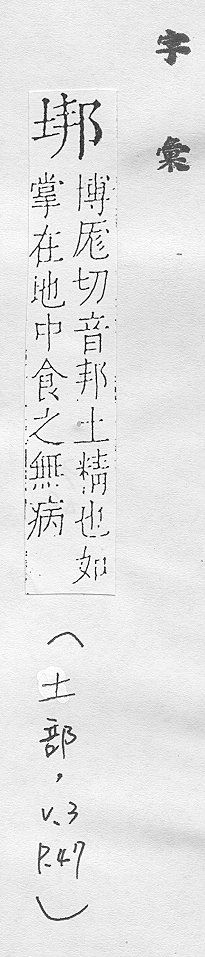 字彙
垹
博厖切音邦土精也如
掌在地中食之無病
(土部,
V.3
P.47)